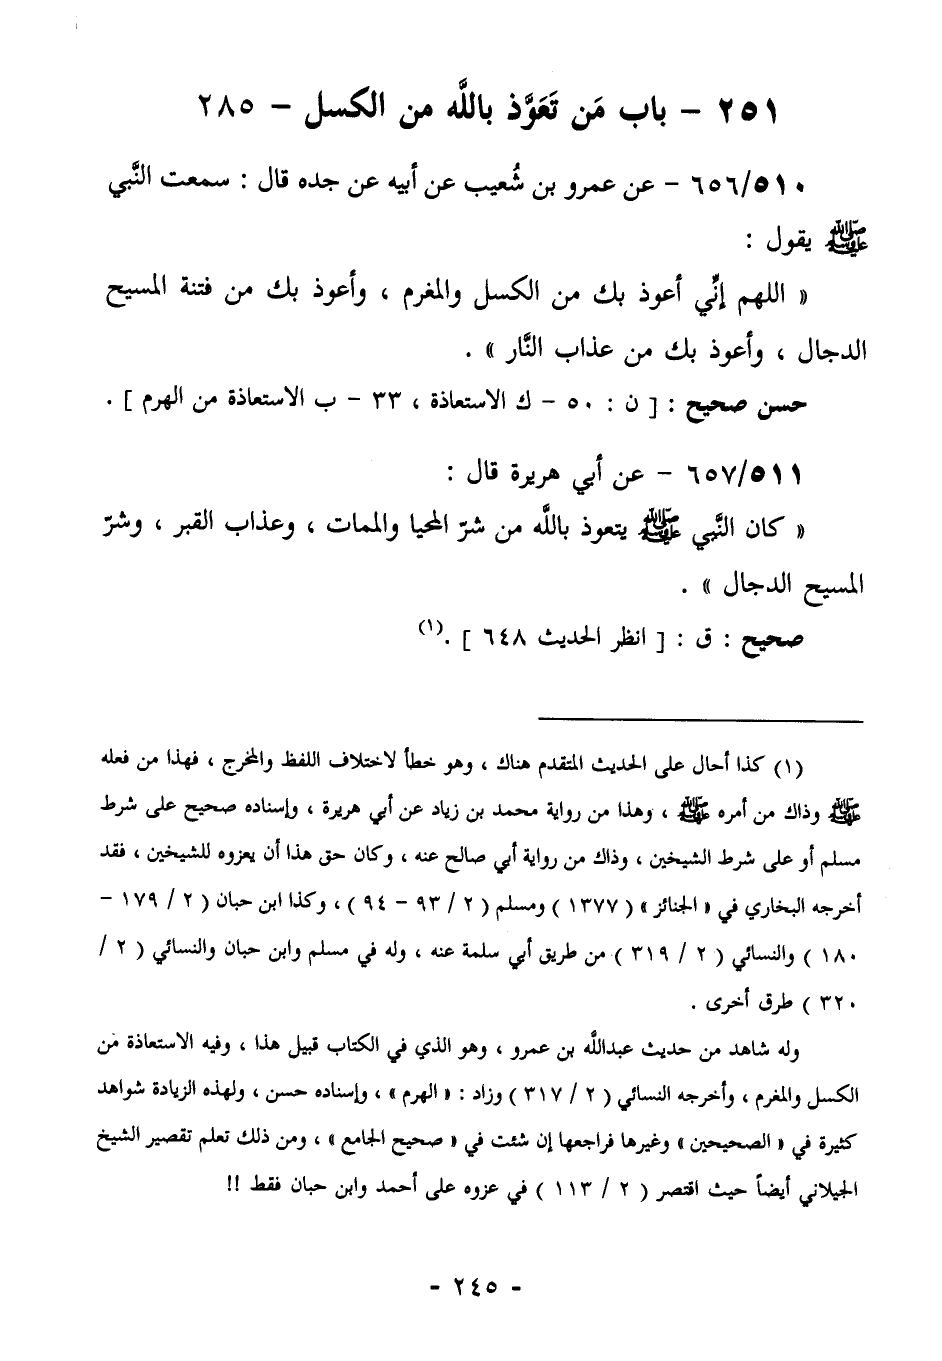 ٢٥١ - باب مَن تَعَوَّذ باللَّه من الكسل - ٢٨٥
٦٥٦/٥١٠ - عن عمرو بن شُعيب عن أبيه عن جده قال : سمعت النَّبي
ﷺ يقول :
« اللهم إنِّي أعوذ بك من الكسل والمغرم ، وأعوذ بك من فتنة المسيح
الدجال ، وأعوذ بك من عذاب النَّار » .
حسن صحيح : [ ن : ٥٠ - ك الاستعاذة ، ٣٣ - ب الاستعاذة من الهرم ] .
٦٥٧/٥١١ - عن أبي هريرة قال :
« كان النَّبي ﷺ يتعوذ باللَّه من شرّ المحيا والممات ، وعذاب القبر ، وشرّ
المسيح الدجال » .
صحيح : ق : [ انظر الحديث ٦٤٨ ] .(١)
(١) كذا أحال على الحديث المتقدم هناك ، وهو خطأ لاختلاف اللفظ والمخرج ، فهذا من فعله
ﷺ وذاك من أمره ﷺ ، وهذا من رواية محمد بن زياد عن أبي هريرة ، وإسناده صحيح على شرط
مسلم أو على شرط الشيخين ، وذاك من رواية أبي صالح عنه ، وكان حق هذا أن يعزوه للشيخين ، فقد
أخرجه البخاري في « الجنائز » ( ١٣٧٧ ) ومسلم ( ٢ / ٩٣ - ٩٤ ) ، وكذا ابن حبان ( ٢ / ١٧٩ -
١٨٠ ) والنسائي ( ٢ / ٣١٩ ) من طريق أبي سلمة عنه ، وله في مسلم وابن حبان والنسائي ( ٢ /
٣٢٠ ) طرق أخرى .
وله شاهد من حديث عبداللَّه بن عمرو ، وهو الذي في الكتاب قبيل هذا ، وفيه الاستعاذة من
الكسل والمغرم ، وأخرجه النسائي ( ٢ / ٣١٧ ) وزاد : « الهرم » ، وإسناده حسن ، ولهذه الزيادة شواهد
كثيرة في « الصحيحين » وغيرها فراجعها إن شئت في « صحيح الجامع » ، ومن ذلك تعلم تقصير الشيخ
الجيلاني أيضاً حيث اقتصر ( ٢ / ١١٣ ) في عزوه على أحمد وابن حبان فقط !!
- ٢٤٥ -